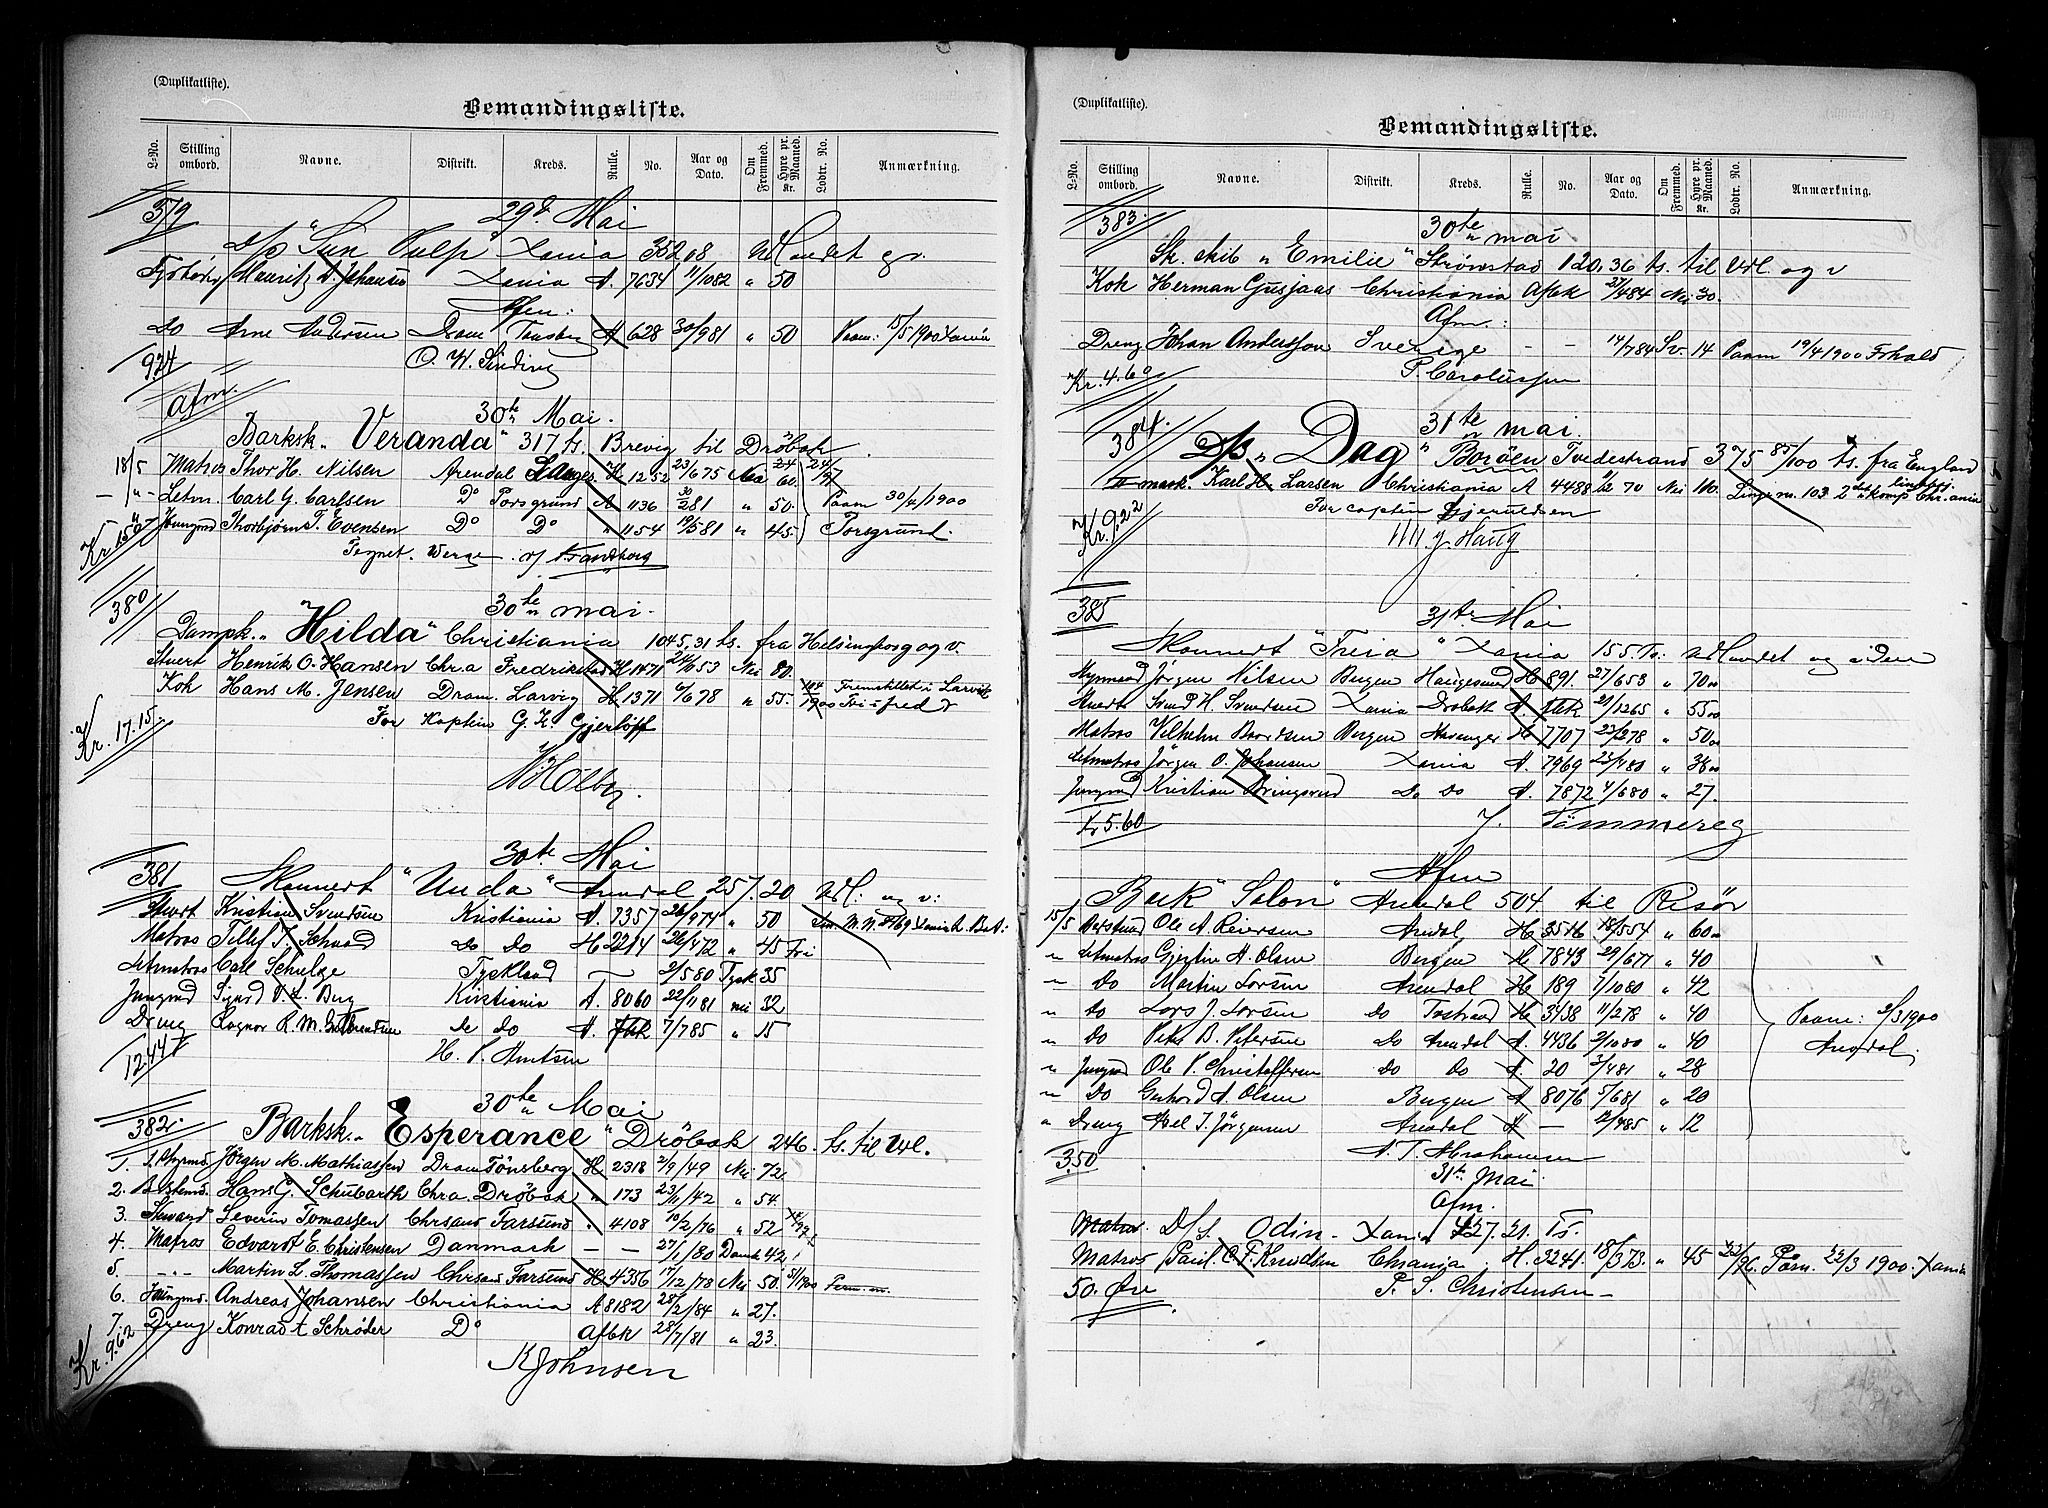 (Duplikatliste).
Bemandingsliste.
L-No. Stilling ombord. Navne. Distrikt. Kreds. Rulle. No. Aar og Dato. Om Fremmed. Hyre pr. Maaned. Kr. Lodtr. No. Anmærkning.
379 29de Mai
D/p "Sun Xania 352,08 Udlandet o.v.
Fyrbøder Mauritz A. Johansen Xania A. 7634 11/1082 " 50
Afm:
Do Arne Andersen Dram Tønsberg A 628 30/981 " 50 Paam: 15/5 1900 Xania
O. W. Sinding
924
Afm. 30te Mai.
Barksk. "Veranda" 317 ts. Brevig til Dröbak.
18/5 Matros Thor H. Nilsen Arendal Langes. H 1252 23/675 Nei 60.
- " - Letm. Carl G. Carlsen Do Porsgrund A 1136 30/281 " 50. Paam 30/4 1900
" Jungmd Thorbjörn T. Evensen Do Do " 1154 19/581 " 45. Porsgrund.
Kr 1.50
Tegnet. Werge v/
380 30te mai.
Dampsk. "Hilda" Christiania 1045,31 ts. fra Helsingborg og v.
Stuert Henrik O. Hansen Chr.a Fredrikstad H 1471 24/653 Nei 80.
Kok Hans M. Jensen Dram. Larvig H 1371 6/678 " 55. Fremstillet i Larvik 1900 Fri i fred
For Kaptein G. K. Gjerløff
Kr. 17.15.
381 30te Mai
Skonnert "Unda" Arendal 257.20 Udl: og v:
Stuert Kristian Svendsen Kristiania A. 7357 26/974 " 50
Matros Tellef T. Do Do H 2214 26/472 " 45 Fri
Letmatros Carl Schulze Tyskland 2/580 Tysk 35
Jungmd Sigurd Berg Kristiania A. 8060 22/1181 nei 32
Dreng Ragnar R. M. Gulbrandsen Do Do A. Afbk 7/785 " 15
H. P. Amtsen
382. 30te Mai
Barksk. "Esperance" Dröbak 246. ts. til Udl.
1. Styrmd. Jörgen M. Mathiassen Dram Tönsberg H 2318 2/9/49 Nei 72.
2. Bestemd. Hans G. Schubarth Chra. Dröbak " 173 23/11/42 " 54.
3. Steward Severin Tomassen Chrsand Farsund " 4108 10/2/76 " 52
4. Matros Edvardt E. Christensen Danmark — — 27/1/80 Dansk 42
5. - " - Martin L. Thomassen Chrsand Farsund H 4356 7/12/78 Nei 50.
6. Jungmd. Andreas Johansen Christiania A 8182 28/2/84 " 27.
7. Dreng Konrad A Schrøder Do Afbk 28/7/81 " 23.
Kr. 9.62
K Johnsen
(Duplikatliste).
Bemandingsliste.
L-No. Stilling ombord. Navne. Distrikt. Kreds. Rulle. No. Aar og Dato. Om Fremmed. Hyre pr. Maaned. Kr. Lodtr. No. Anmærkning.
383. 30te mai
Sk. skib "Emilie" Strømstad 120,36 ts. til Udl. og v
Kok Herman Gusjaas Christiania Afbk 27/484 Nei 30.
Afm.:
Dreng Johan Andersson Sverige — — 14/784 Sv. 14 Paam 19/4 1900 Frhald
Kr. 4.60 P. Carolussen
384. 31te mai
D/s "Dag" Borøen Tvedestrand 375 85/100 ts. fra England
II mask. Karl H. Larsen Christiania A 4488 70 Nei 110. Linje no. 103 2den Komp Chr.ania
For captein Gjeruldsen
Kr. 9.22
Haug
385 31te Mai
Skonnert "Freia" Xania 155. Ts. Udlandet og viden
Styrmand Jørgen Nilsen Bergen Haugesund H 891. 27/653 " 70
Stuert Svend H. Svendsen Xania Drøbak A. Afbk 21/1265 " 55
Matros Vilhelm Bergen Stavanger H 7707 23/278 " 50
Letmatros Jørgen O. Johansen Xania A. 7969 23/480 " 38
Jungmd Kristian Bringsrud Do Do A. 7872 4/680 " 27.
Kr 5.60 J. Tömmereg
Afm
Bark "Solon" Arendal 504. til Risør
15/5 Bestmd Ole A. Reiersen Arendal H 3546 18/554 " 60
" Letmatros Gjertin A. Olsen Bergen H 7843 29/677 " 40
" Do Martin Larsen Arendal H 189 7/1080 " 42
" Do Lars J. Larsen Do H 3438 11/278 " 40 Paam: 2/3 1900
" Do Peter B. Petersen Do Arendal A. 4436 2/1080 " 40 Arendal.
" Jungmd Ole P. Christoffersen Do Do A. 20 3/481 " 28
" Do Gerhard A. Olsen Bergen A 8076 5/681 " 20
" Dreng Axel T. Jörgensen Arendal A — 12/485 " 12
A. T. Abrahamsen
3.50 31te Mai
Afm.
D/S. Odin - Xania 427.21. Ts.
Matros Paul. O. F. Knudsen Chrania. H. 3241. 18/373. " 45 22/96. Paam. 22/3 1900. Xania
50. Øre P. S. Christensen